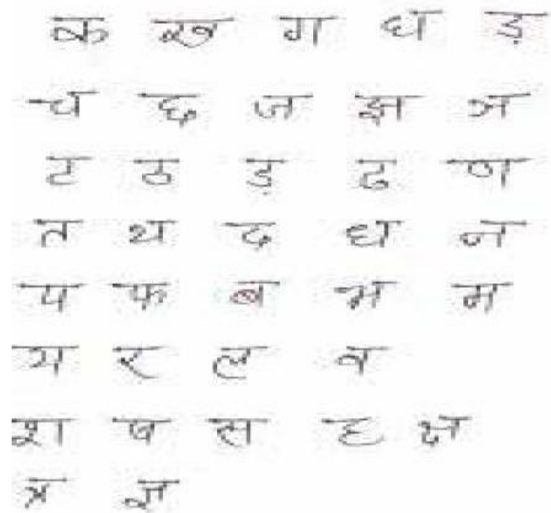 क ख ग घ ङ
च छ ज झ ञ
ट ठ ड ढ ण
त थ द ध न
प फ ब भ म
य र ल व
श ष स ह क्ष
त्र ज्ञ